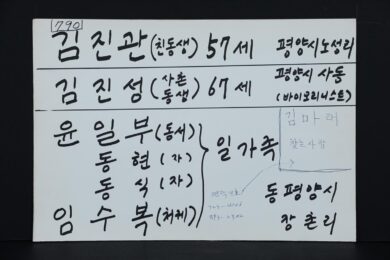 790
김진관(친동생) 57세 평양시노성리
김진성(사촌동생) 67세 평양시 사동
(바이오리니스트)
윤일부(동서)
동현(자)
동식(자)
임수복(처제)
일가족
동평양시
장촌리
김마리
찾는사람